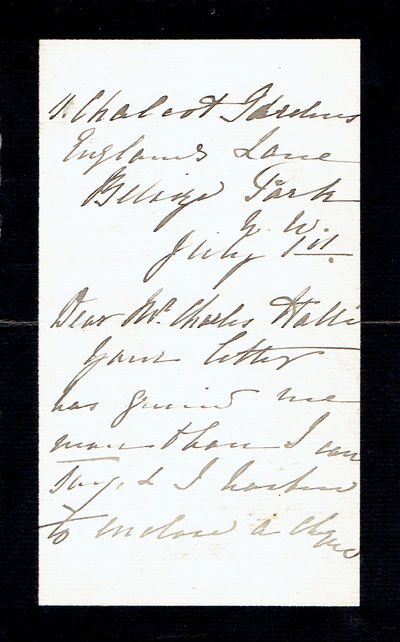 11. Chalcot Gardens
England's Lane
Belsize Park
N. W.
July 1st.
Dear Mr. Charles Hallé
Your letter
has grieved me
more than I can
say, & I hasten
to enclose a cheque